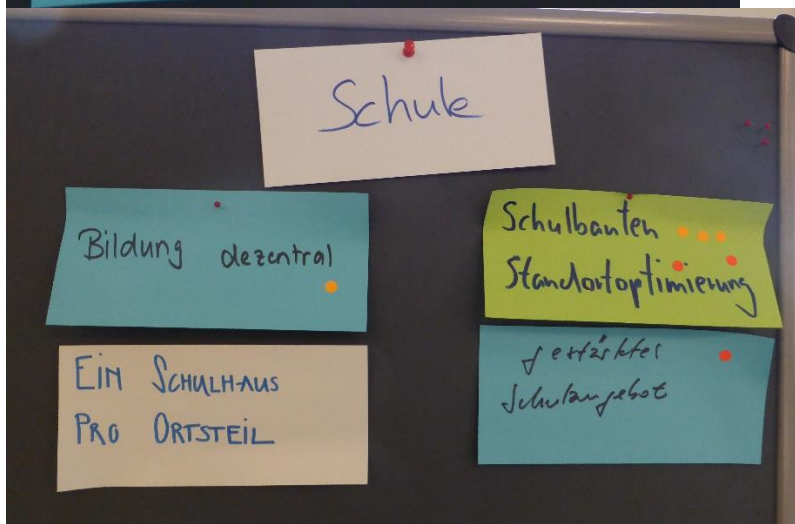 Schule
Bildung dezentral
Ein Schulhaus
pro Ortsteil
Schulbauten
Standortoptimierung
gestärktes
Schulangebot